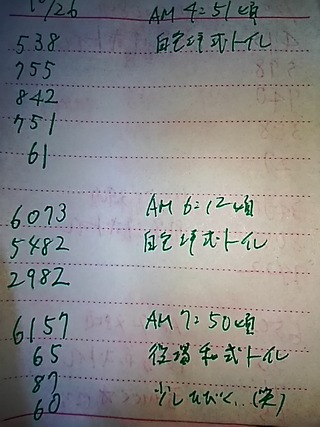 10/26 AM 4:51頃
538 自宅洋式トイレ
755
842
751
61
6073 AM 6:12頃
5482 自宅洋式トイレ
2982
6157 AM 7:50頃
65 役場和式トイレ
87 少しひびく..(笑)
60